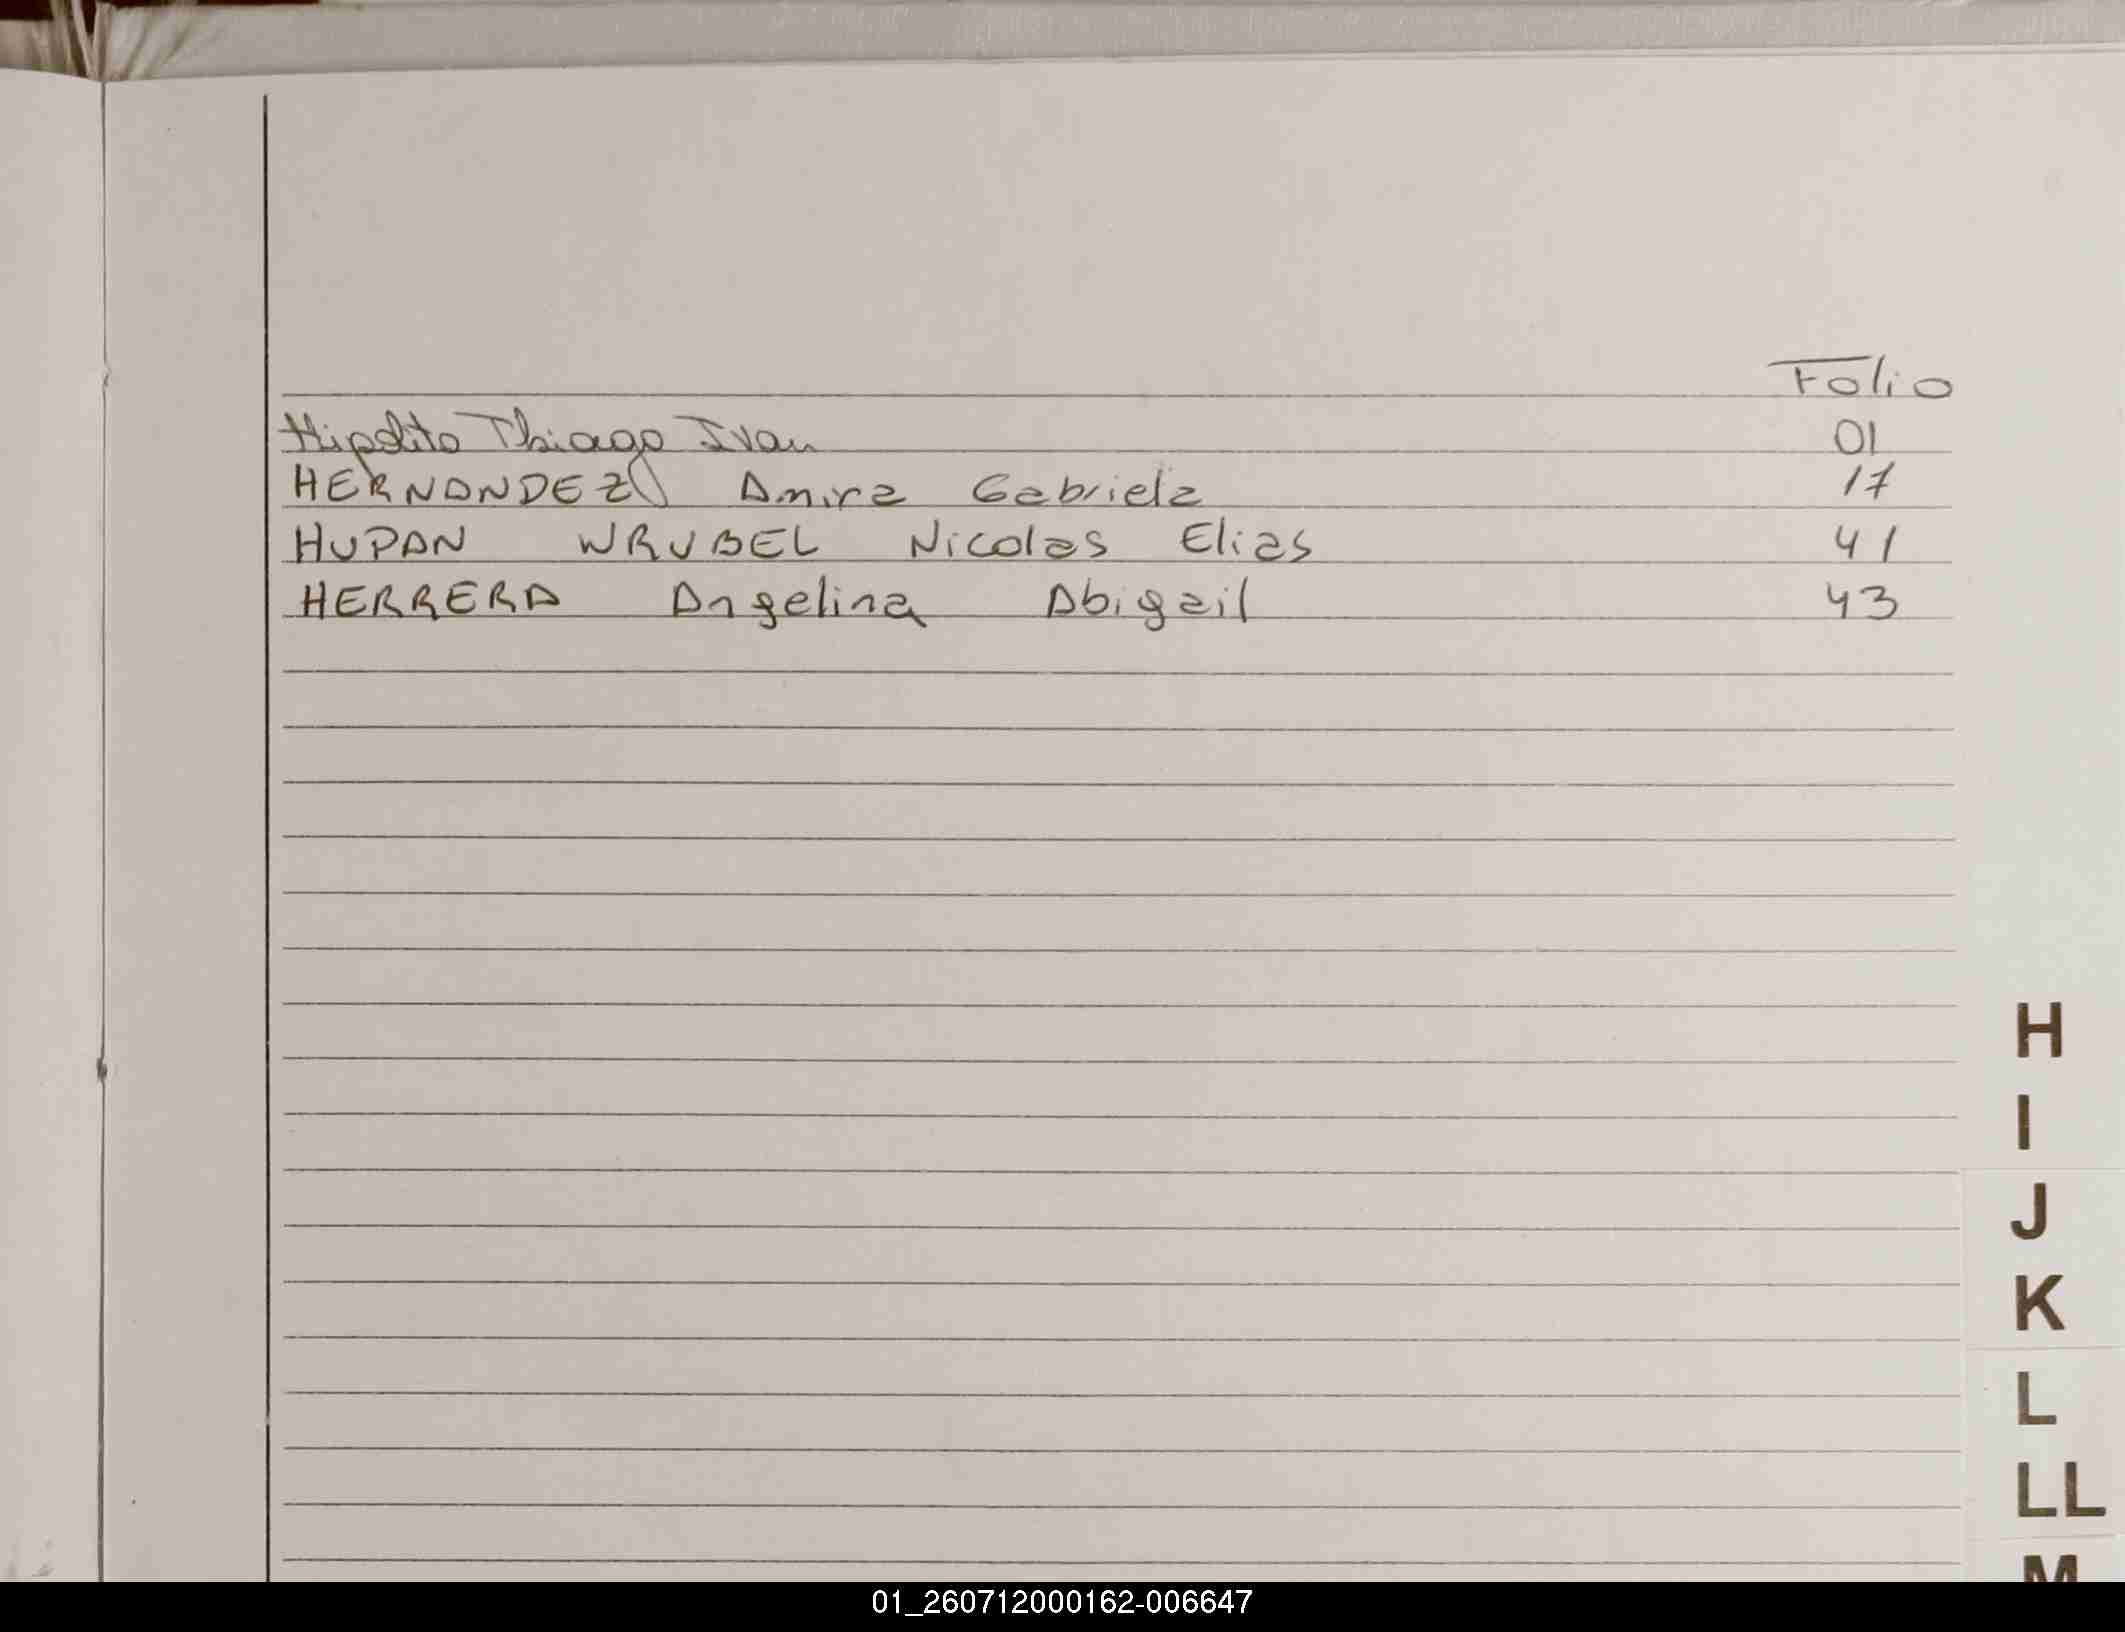 Folio
Hipolito Thiago Ivan 01
HERNANDEZ Amira Gabriela 17
HUPAN WRUBEL Nicolas Elias 41
HERRERA Angelina Abigail 43
H
I
J
K
L
LL
M
01_260712000162-006647